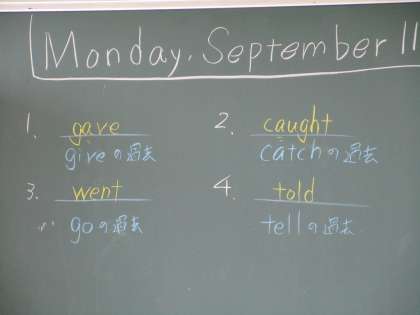 Monday, September 11
1. gave
giveの過去
2. caught
catchの過去
3. went
goの過去
4. told
tellの過去